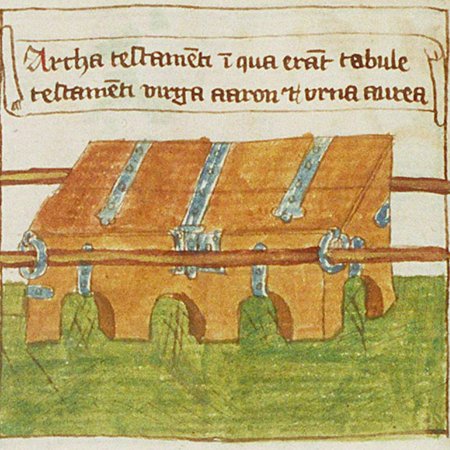 Archa testam̄ti ī qua erāt tabule
testam̄ti virga aaron ⁊ vrna aurea